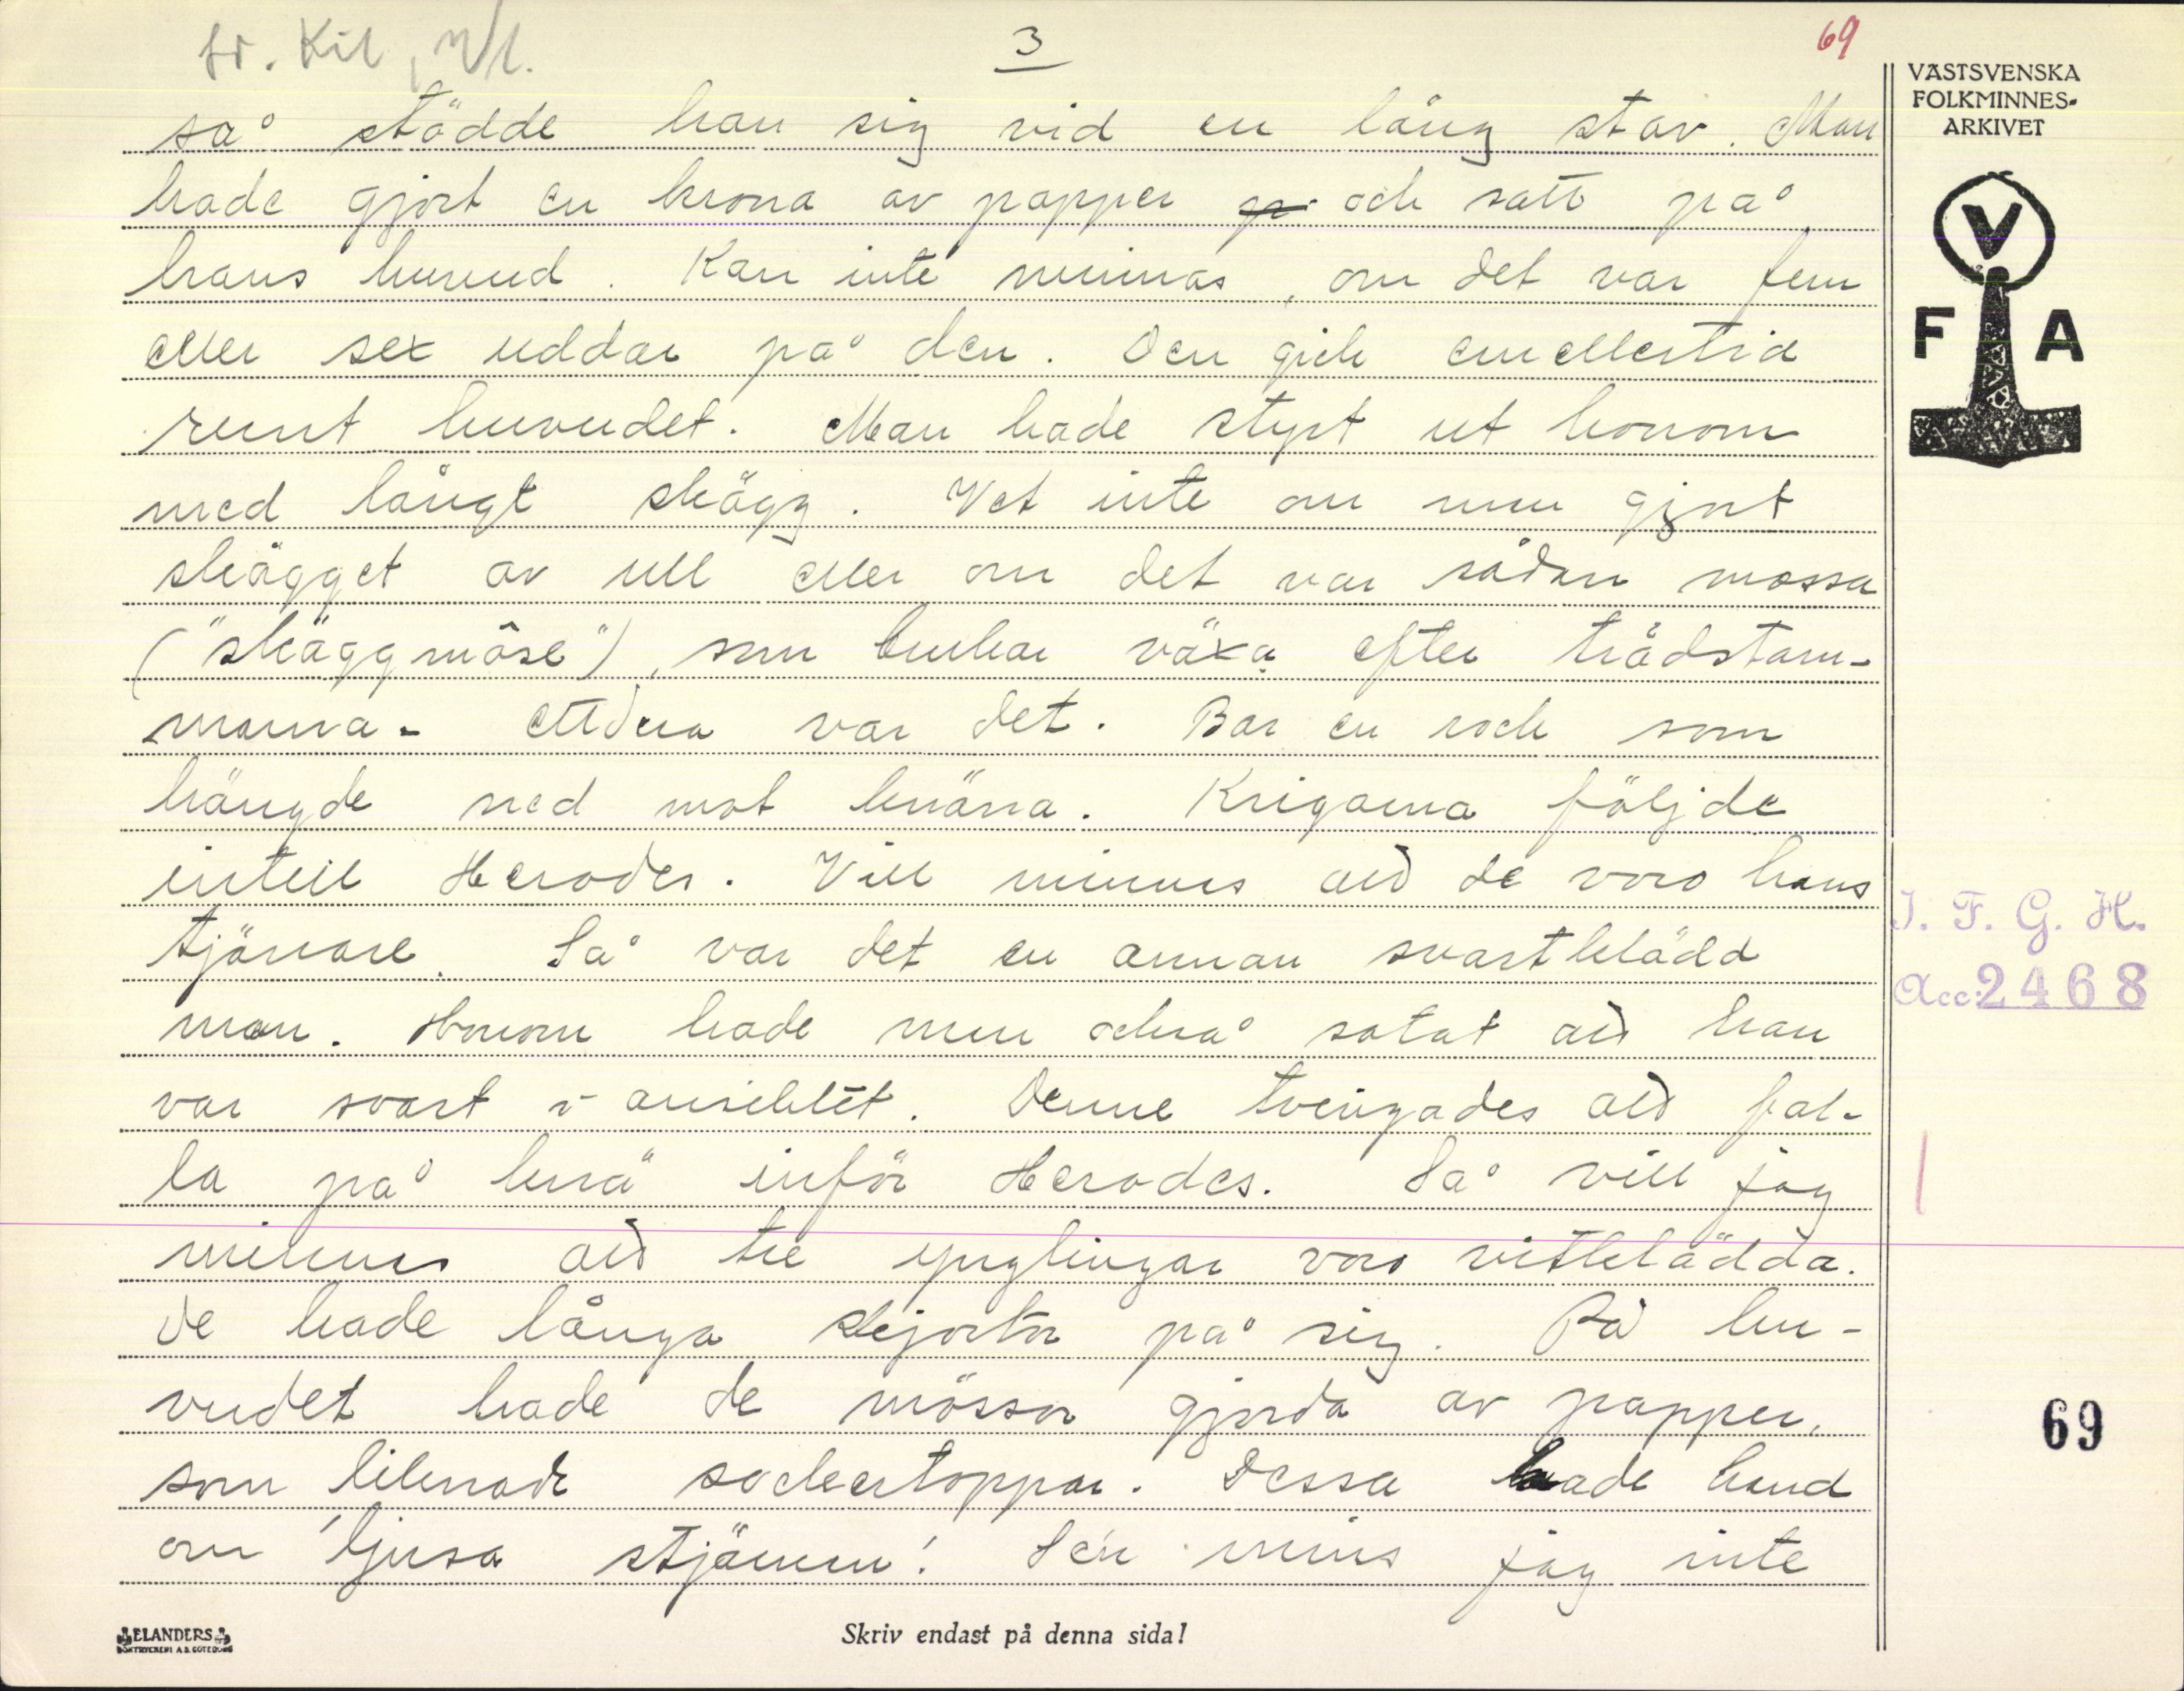 St. Kil, Vl.
3
69
så stödde han sig vid en lång stav. Man
hade gjort en krona av papper och satt på
hans huvud. Kan inte minnas, om det var fem
eller sex uddar på den. Den gick emellertid
runt huvudet. Man hade styrt ut honom
med långt skägg. Vet inte om mun gjort
skägget av ull eller om det var sådan mossa
("skäggmôse"), som brukar växa efter trädstam-
marna - ettdera var det. Bar en rock som
hängde ned mot knäna. Krigarna följde
intill Herodes. Vill minnas att de voro hans
tjänare. Så var det en annan svartklädd
man. Honom hade mun också sotat att han
var svart i ansiktet. Denne tvingades att fal-
la på knä inför Herodes. Så vill jag
minnas att tre ynglingar voro vitklädda.
De hade långa skjortor på sig. På hu-
vudet hade de mössor gjorda av papper,
som liknade sockertoppar. Dessa hade hand
om 'ljusa stjärnun'. Se'n mins jag inte
VÄSTSVENSKA
FOLKMINNES-
ARKIVET
V
F A
I. F. G. H.
Acc: 2468
69
ELANDERS
BOKTRYCKERI A.B. GÖTEBORG
Skriv endast på denna sida!